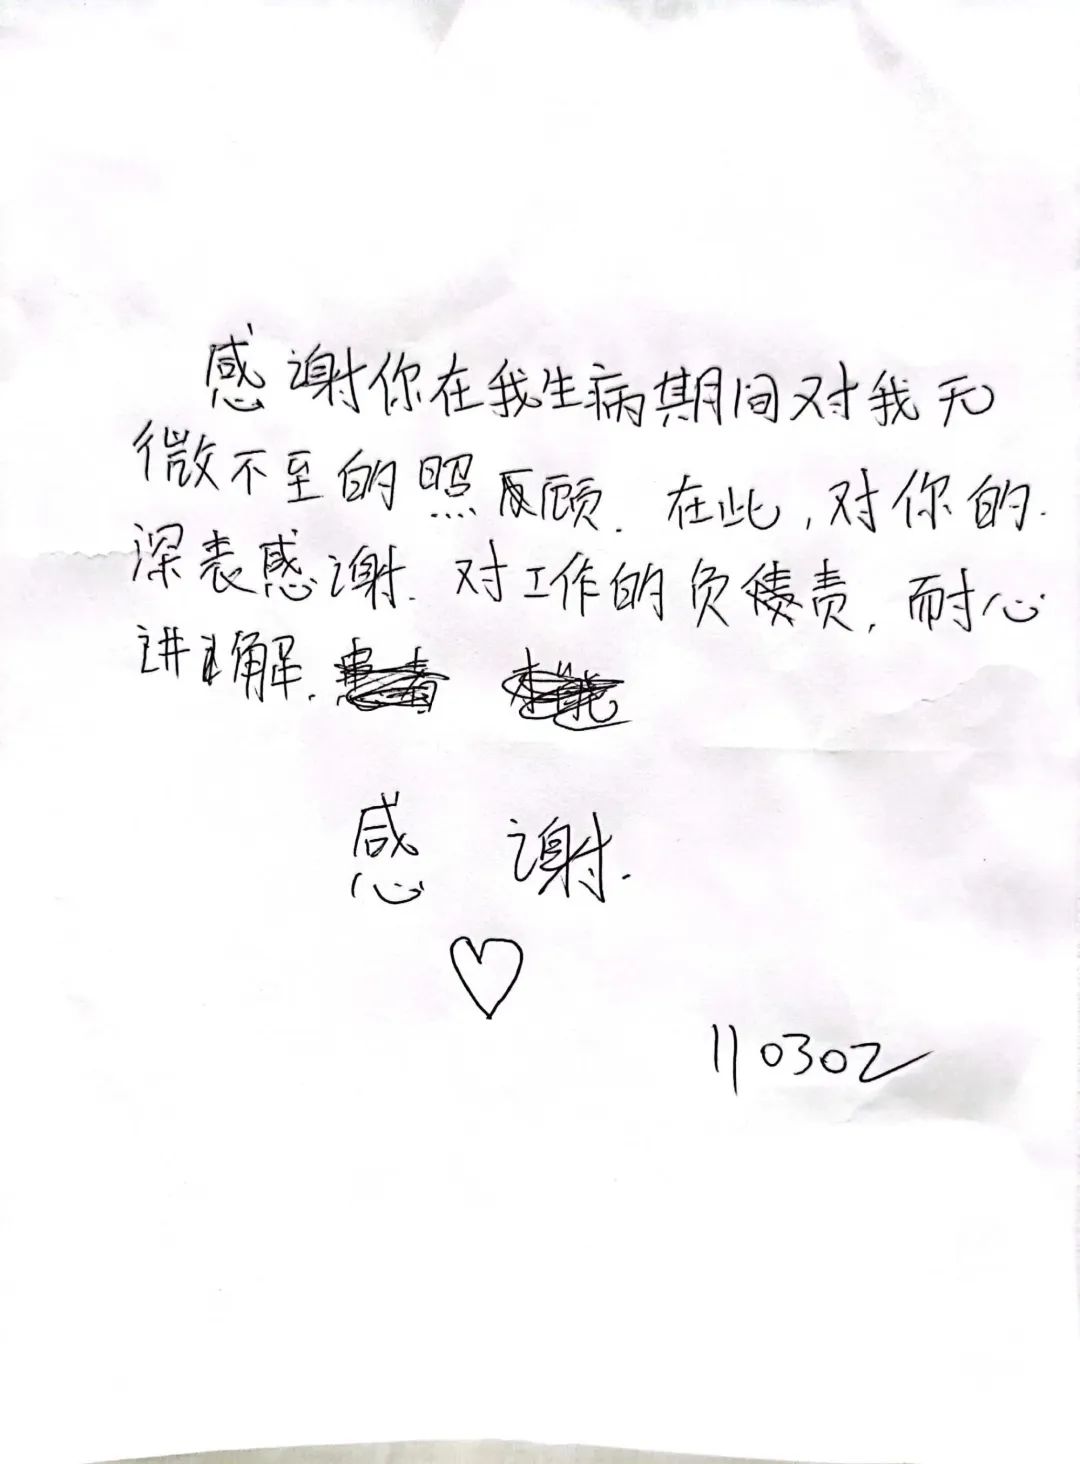 感谢你在我生病期间对我无
微不至的照顾.在此,对你的.
深表感谢.对工作的负责,耐心
讲解.
感 谢.
110302